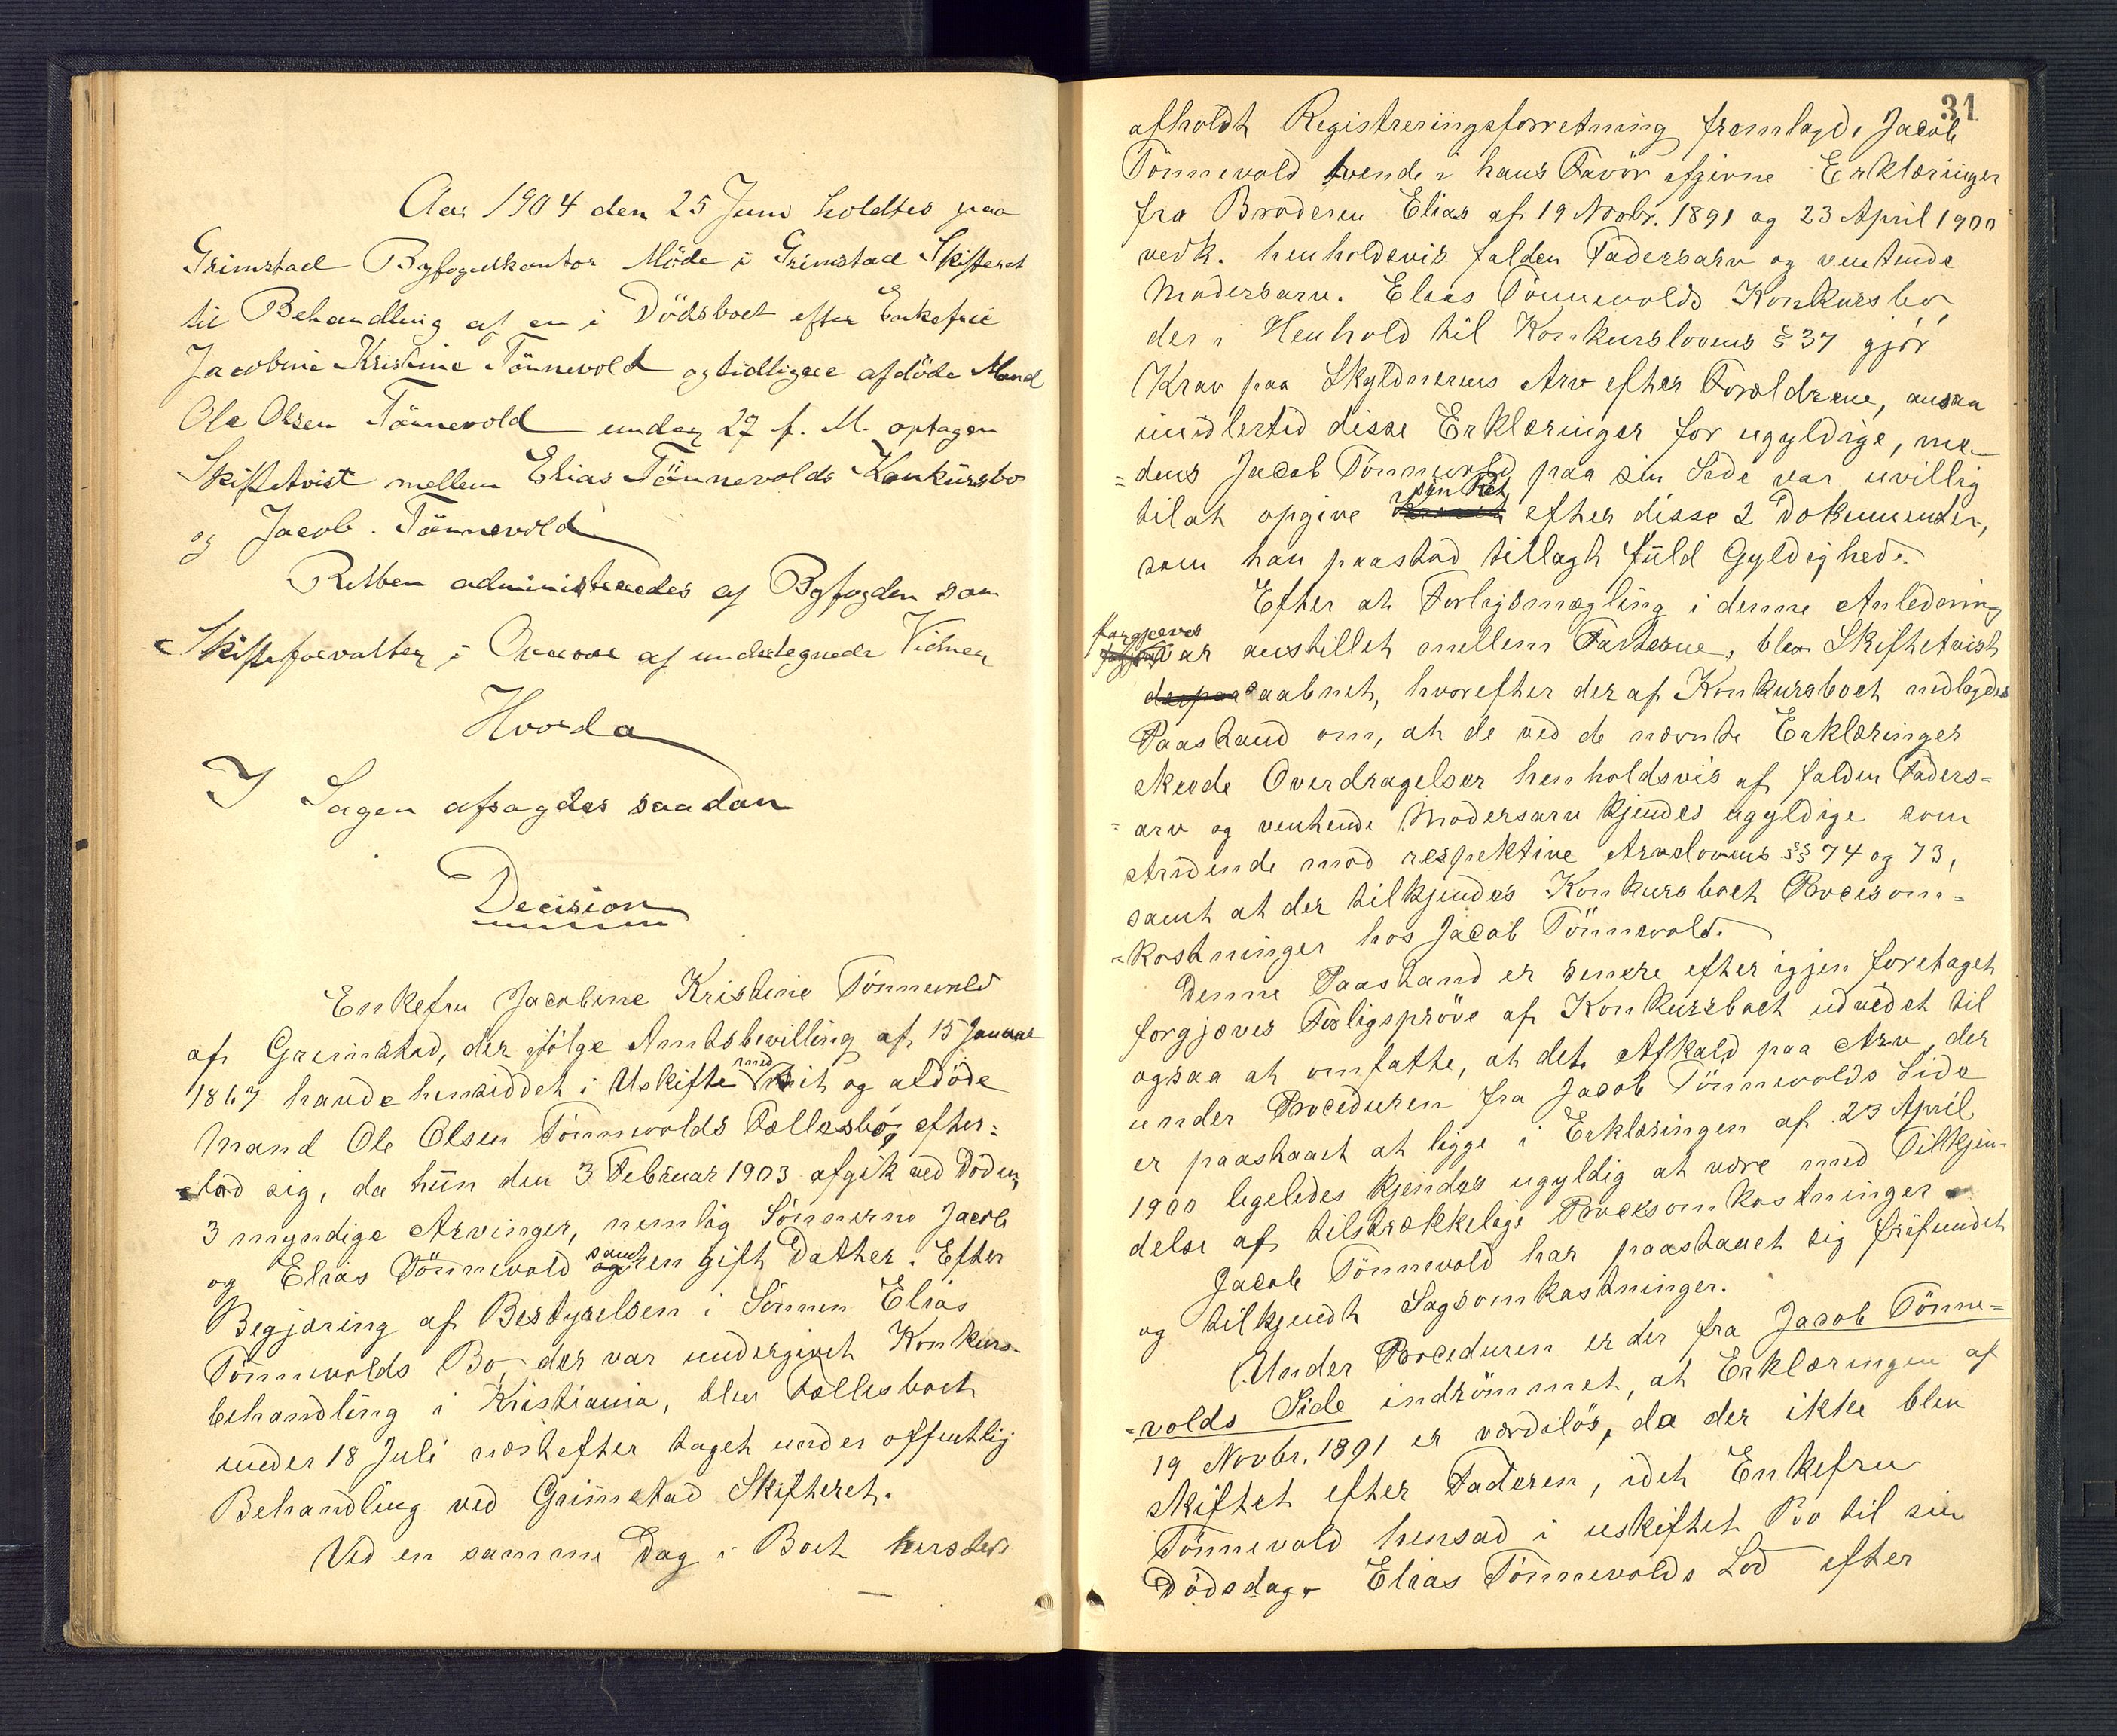 Aar 1904 den 25 Juni holdtes paa
Grimstad Byfogedkontor Möde i Grimstad Skifteret
til Behandling af en i Dödsboet efter Enkefrue
Jacobine Kristine Tönnevold og tidligere afdöde Mand
Ole Olsen Tönnevold under 27 f. M. optagen
Skiftetvist mellem Elias Tönnevolds Konkursbo
og Jacob Tönnevold.
Retten administreredes af Byfogden som
Skifteforvalter i Overvær af undertegnede Vidner
Hvorda
I Sagen afsagdes saadan
Decision
Enkefru Jacobine Kristine Tönnevold
af Grimstad, der ifölge Amtsbevilling af 15 Januar
1867 havde hensiddet i Uskifte med sit og afdöde
Mand Ole Olsen Tönnevolds Fællesbo, efter=
=lod sig, da hun den 3 Februar 1903 afgik ved Döden,
3 myndige Arvinger, nemlig Sönnerne Jacob
og Elias Tönnevold samt en gift Datter. Efter
Begjæring af Bestyrelsen i Sönnen Elias
Tönnevolds Bo, der var undergivet Konkurs-
behandling i Kristiania, blev Fællesboet
under 18 Juli næstefter taget under offentlig
Behandling ved Grimstad Skifteret.
Ved en samme Dag i Boet hersteds
31
afholdt Registreringsforretning fremlagde Jacob
Tönnevold tvende i hans Favör afgivne Erklæringer
fra Broderen Elias af 19 Novbr. 1891 og 23 April 1900
vedk. henholdsvis falden Fadersarv og ventende
Modersarv. Elias Tönnevolds Konkursbo,
der i Henhold til Konkurslovens § 37 gjör
Krav paa Skyldnerens Arv efter Forældrene, ansaa
imidlertid disse Erklæringer for ugyldige, me-
=dens Jacob Tönnevold paa sin Side var uvillig
til at opgive sin Ret efter disse 2 Dokumenter,
som han paastod tillagt fuld Gyldighed.
Efter at Forligsmægling i denne Anledning
forgjæves
var anstillet mellem Parterne, blev Skiftetvist
aabnet, hvorefter der af Konkursboet nedlagdes
Paastand om, at de ved de nævnte Erklæringer
skeede Overdragelser henholdsvis af falden Faders=
=arv og ventende Modersarv kjendes ugyldige som
stridende mod respektive Arvelovens §§ 74 og 73,
samt at der tilkjendes Konkursboet Procesom=
=kostninger hos Jacob Tönnevold.
Denne Paastand er senere efter igjen foretaget
forgjæves Forligspröve af Konkursboet udvidet til
ogsaa at omfatte, at det Afkald paa Arv, der
under Proceduren fra Jacob Tönnevolds Side
er paastaaet at ligge i Erklæringen af 23 April
1900 ligeledes kjendes ugyldig at være med Tilkjen-
delse af tilstrækkelige Procesomkostninger.
Jacob Tönnevold har paastaaet sig frifundet
og tilkjendt Sagsomkostninger.
Under Proceduren er der fra Jacob Tönne=
=volds Side indrömmet, at Erklæringen af
19 Novbr. 1891 er værdilös, da der ikke blev
skiftet efter Faderen, idet Enkefru
Tönnevold hensad i uskiftet Bo til sin
Dödsdag. Elias Tönnevolds Lod efter